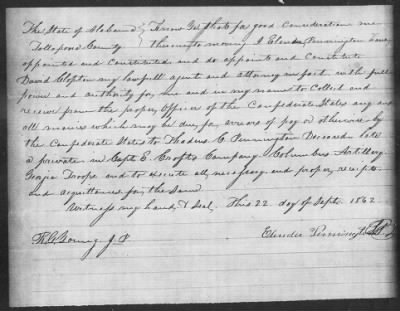 The State of Alabama } Know Ye, that for good Consideration me
Tallapoosa County } thereunto moving I Elender Pennington have
appointed and Constituted and do appoint and Constitute
David Clopton my lawfull agent and attorney in fact with full
power and authority for me and in my name to Collect and
receive from the proper Officer of the Confederate States any and
all monies which may be due for arrears of pay or otherwise by
the Confederate States to Thadus C. Pennington Deceased late
a private in Capt E. Crofts Company Columbus Artillery
Georgia Troops and to execute all necessary and proper receipts
and acquittances for the Same
Witness my hand & Seal, This 22. day of Sept. 1862
J. P. Elender Pennington